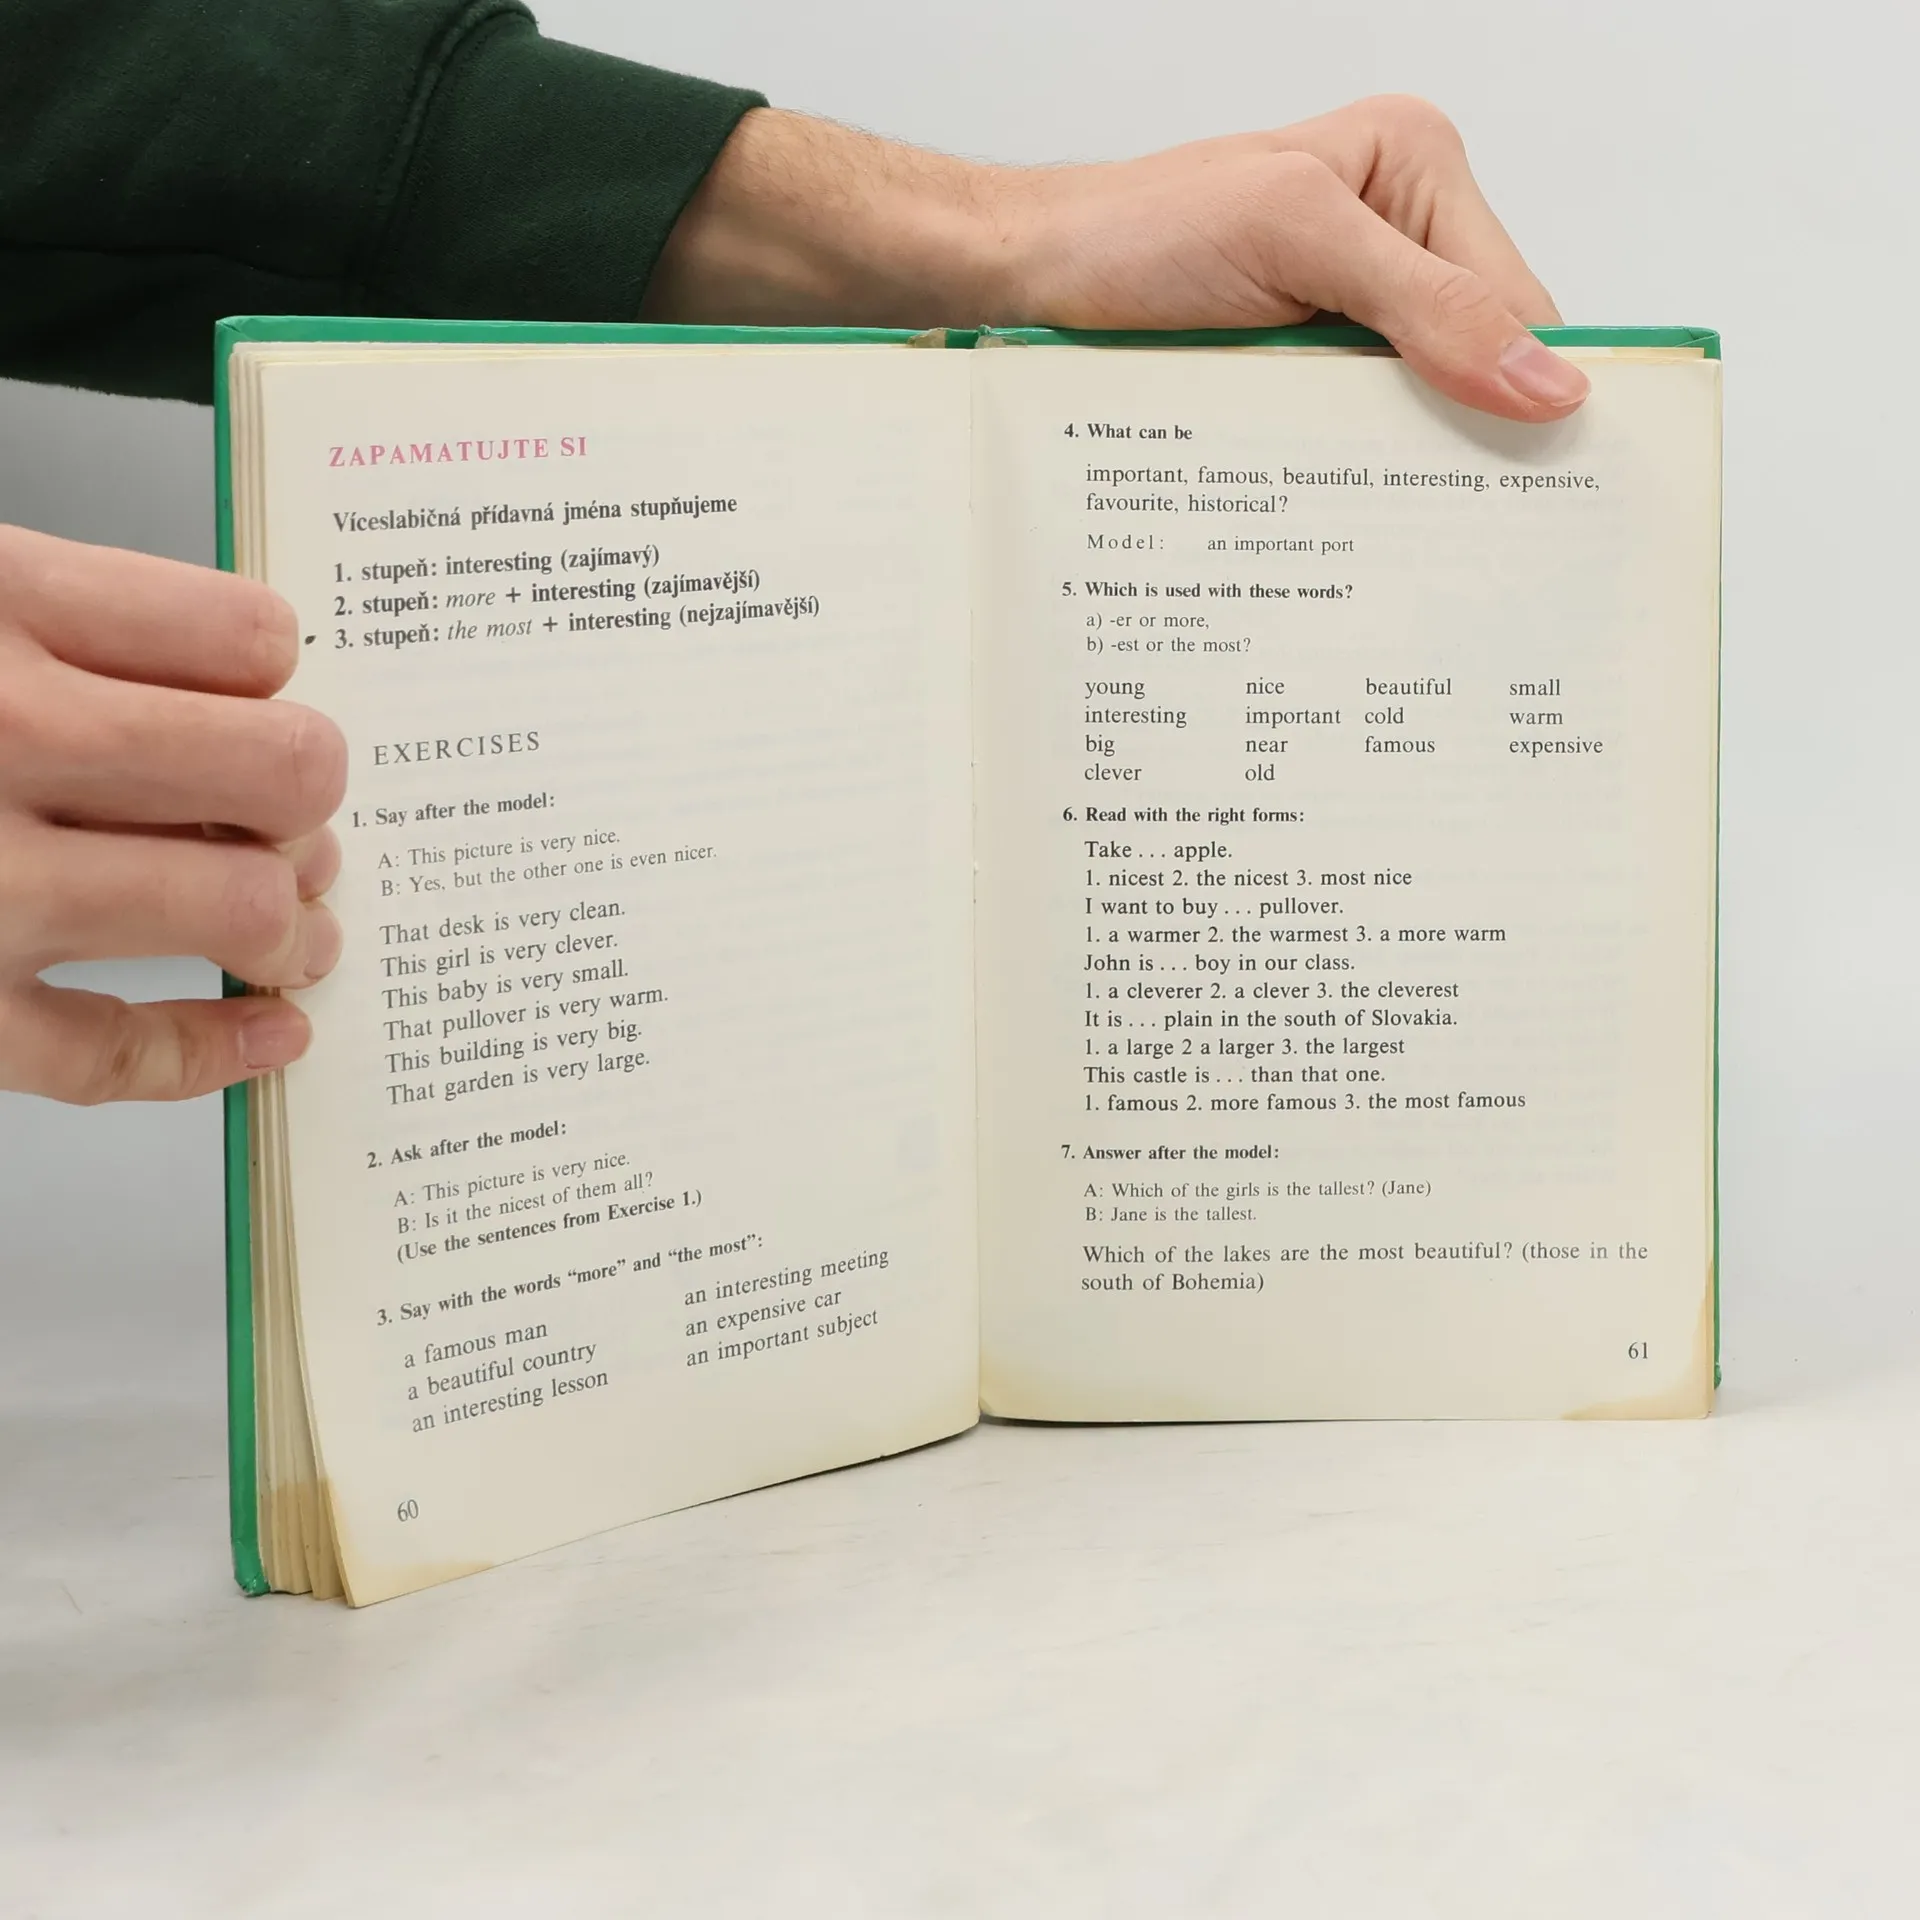 ZAPAMATUJTE SI
Víceslabičná přídavná jména stupňujeme
1. stupeň: interesting (zajímavý)
2. stupeň: more + interesting (zajímavější)
3. stupeň: the most + interesting (nejzajímavější)
EXERCISES
1. Say after the model:
A: This picture is very nice.
B: Yes, but the other one is even nicer.
That desk is very clean.
This girl is very clever.
This baby is very small.
That pullover is very warm.
This building is very big.
That garden is very large.
2. Ask after the model:
A: This picture is very nice.
B: Is it the nicest of them all?
(Use the sentences from Exercise 1.)
3. Say with the words “more” and “the most”:
a famous man an interesting meeting
a beautiful country an expensive car
an interesting lesson an important subject
60
4. What can be
important, famous, beautiful, interesting, expensive,
favourite, historical?
Model: an important port
5. Which is used with these words?
a) -er or more,
b) -est or the most?
young nice beautiful small
interesting important cold warm
big near famous expensive
clever old
6. Read with the right forms:
Take ... apple.
1. nicest 2. the nicest 3. most nice
I want to buy ... pullover.
1. a warmer 2. the warmest 3. a more warm
John is ... boy in our class.
1. a cleverer 2. a clever 3. the cleverest
It is ... plain in the south of Slovakia.
1. a large 2 a larger 3. the largest
This castle is ... than that one.
1. famous 2. more famous 3. the most famous
7. Answer after the model:
A: Which of the girls is the tallest? (Jane)
B: Jane is the tallest.
Which of the lakes are the most beautiful? (those in the
south of Bohemia)
61